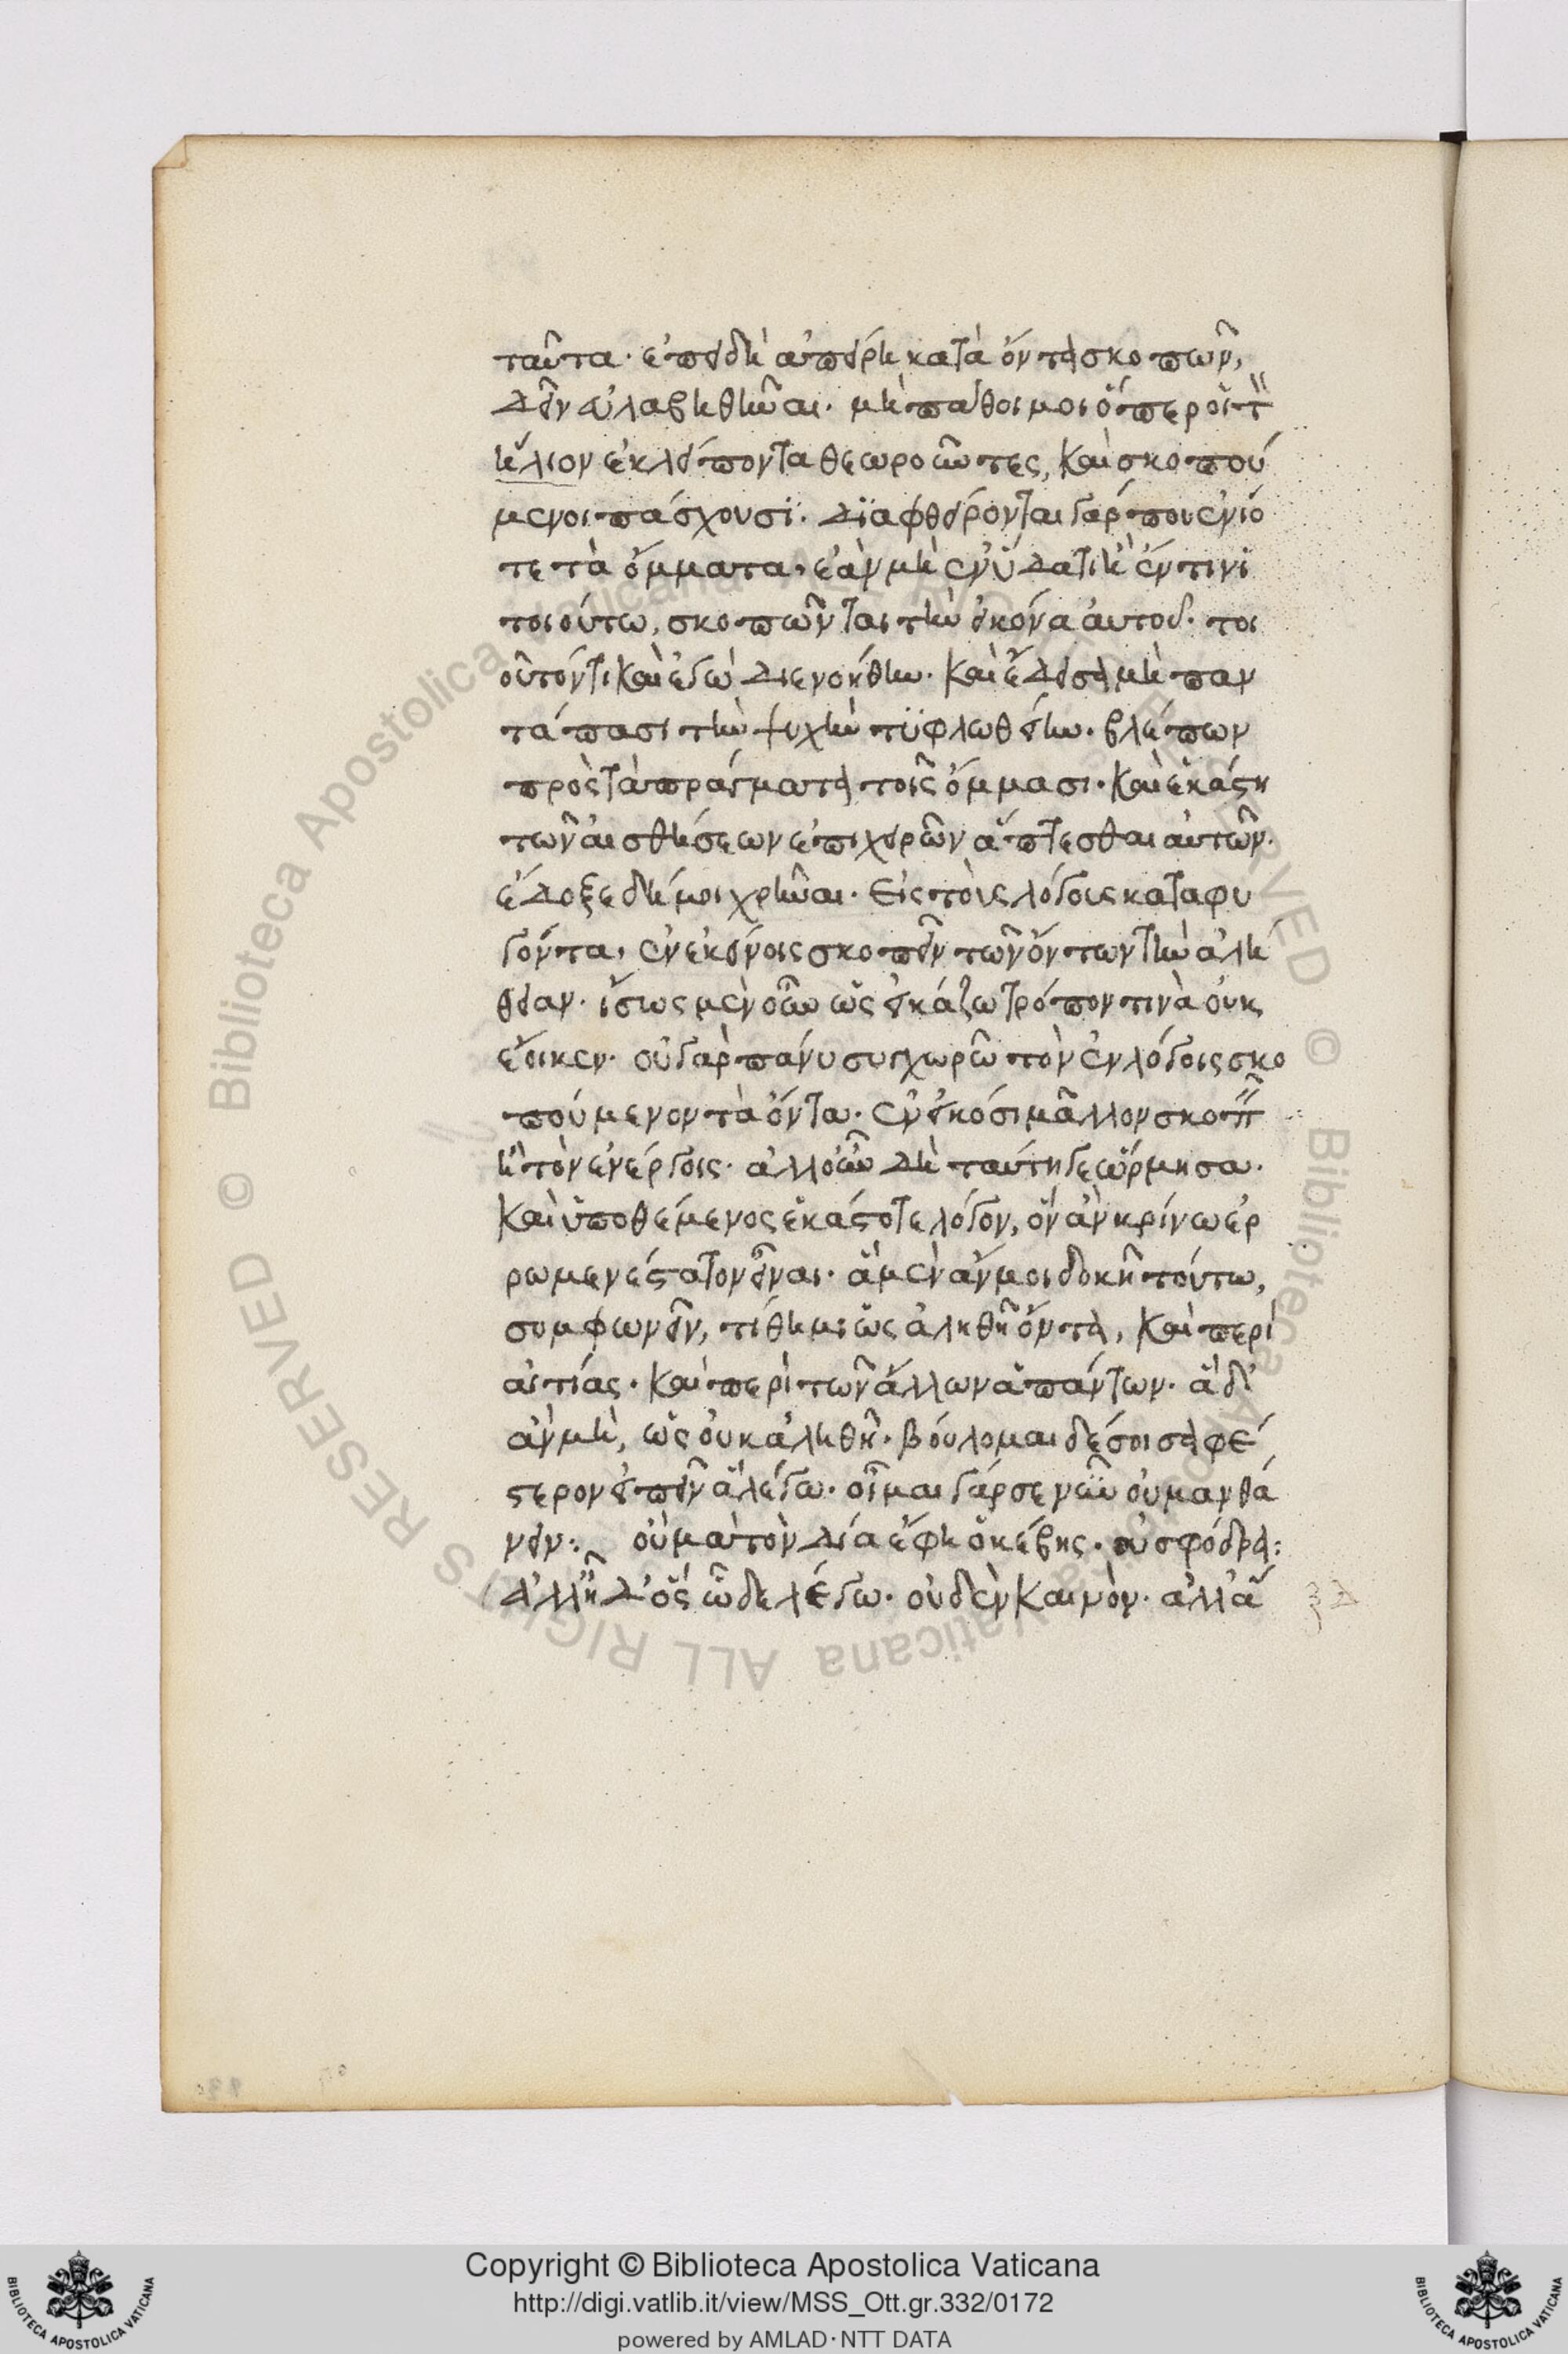 ταῦτα· ἐπειδὴ ἀπείρηκα τὰ ὄντα σκοπῶν,
δεῖν εὐλαβηθῆναι· μὴ πάθοιμοι ὅπερ οἱ τ
ἥλιον ἐκλείποντα θεωροῦντες, καὶ σκοπού
μενοι πάσχουσϊ· δϊαφθείρονται γάρ που ἐνιό
τε τὰ ὄμματα, ἐὰν μὴ ἐν ὕδατι ἢ ἔν τινι
τοιούτω, σκοπῶνται τὴν εἰκόνα αὐτοῦ· τοι
οῦτόν τι καὶ ἐγὼ διενοήθην· καὶ ἔδεισα μὴ παν
τάπασι τὴν ψυχὴν τϋφλωθείην· βλέπων
πρὸς τὰ πράγματα τοῖς ὄμμασι· καὶ ἑκάστη
τῶν αἰσθήσεων ἐπιχειρῶν ἅπτεσθαι αὐτῶν·
ἔδοξε δή μοι χρῆναι· εἰς τοὺς λόγους καταφυ
γόντα, ἐν ἐκείνοις σκοπεῖν τῶν ὄντων τὴν ἀλή
θειαν· ἴσως μὲν οὖν ὧς εἰκάζω τρόπον τινὰ οὐκ
ἔοικεν· οὐ γὰρ πάνυ συγχωρῶ τὸν ἐν λόγοις σκο
πούμενον τὰ ὄντα· ἐν εἰκόσι μᾶλλον σκοπ
ἢ τὸν ἐν ἔργοις· ἀλλ' οὖν δὴ ταύτη γε ὥρμησα·
καὶ ὑποθέμενος ἑκάστοτε λόγον, ὃν ἂν κρίνω ἐρ
ρωμενέστατον εἶναι· ἃ μὲν ἄν μοι δοκῆ τούτω,
συμφωνεῖν, τίθημι ὡς ἀληθῆ ὄντα, καὶ περὶ
αἰτίας· καὶ περὶ τῶν ἄλλων ἁπάντων· ἃ δ'
ἂν μὴ, ὡς οὐκ ἀληθῆ· βούλομαι δέ σοι σαφέ
στερον εἰπεῖν ἃ λέγω· οἶμαι γάρ σε νῦν οὐ μανθά
νειν:· οὐ μὰ τὸν Δία ἔφη ὁ κέβης· οὐ σφόδρα:
Ἀλλ' ἦ δ' ὃς ὧδε λέγω· οὐδὲν καινὸν· ἀλλ' ἃ
Copyright © Biblioteca Apostolica Vaticana
http://digi.vatlib.it/view/MSS_Ott.gr.332/0172
powered by AMLAD·NTT DATA